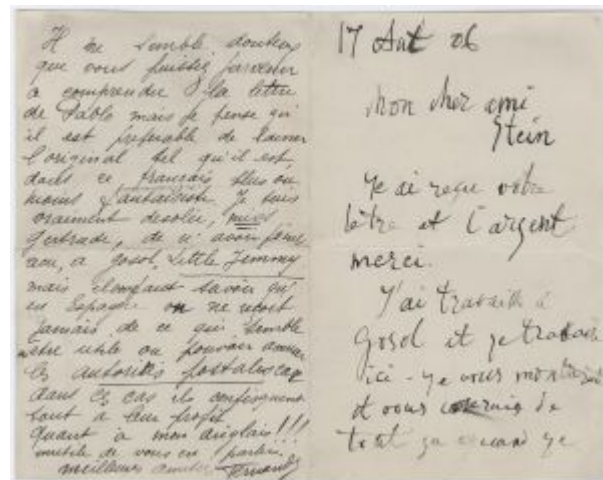 Il me semble douteux
que vous puissiez parvenir
a comprendre la lettre
de Pablo mais je pense qu'
il est preferable de laisser
l'original tel qu'il est
dans ce français plus ou
moins fantaisiste. Je suis
vraiment desolée, miss
Gertrude, de n'avoir
a Gosol, Little Jimmy
mais il faut savoir qu'
en Espagne on ne reçoit
jamais de ce qui semble
etre utile ou pouvoir amuser
les autorités postales car
dans ces cas ils confisquent
tout a leur profit
Quant à mon anglais!!!
inutile de vous en parler.
meilleures amitiés Fernande
17 Aut 06
Mon cher ami
Stein
Je ai reçu votre
letre et l'argent
merci.
J'ai travaillé à
Gosol et je travaille
ici - ye vous montrerai
et vous de
tout ça quand ye